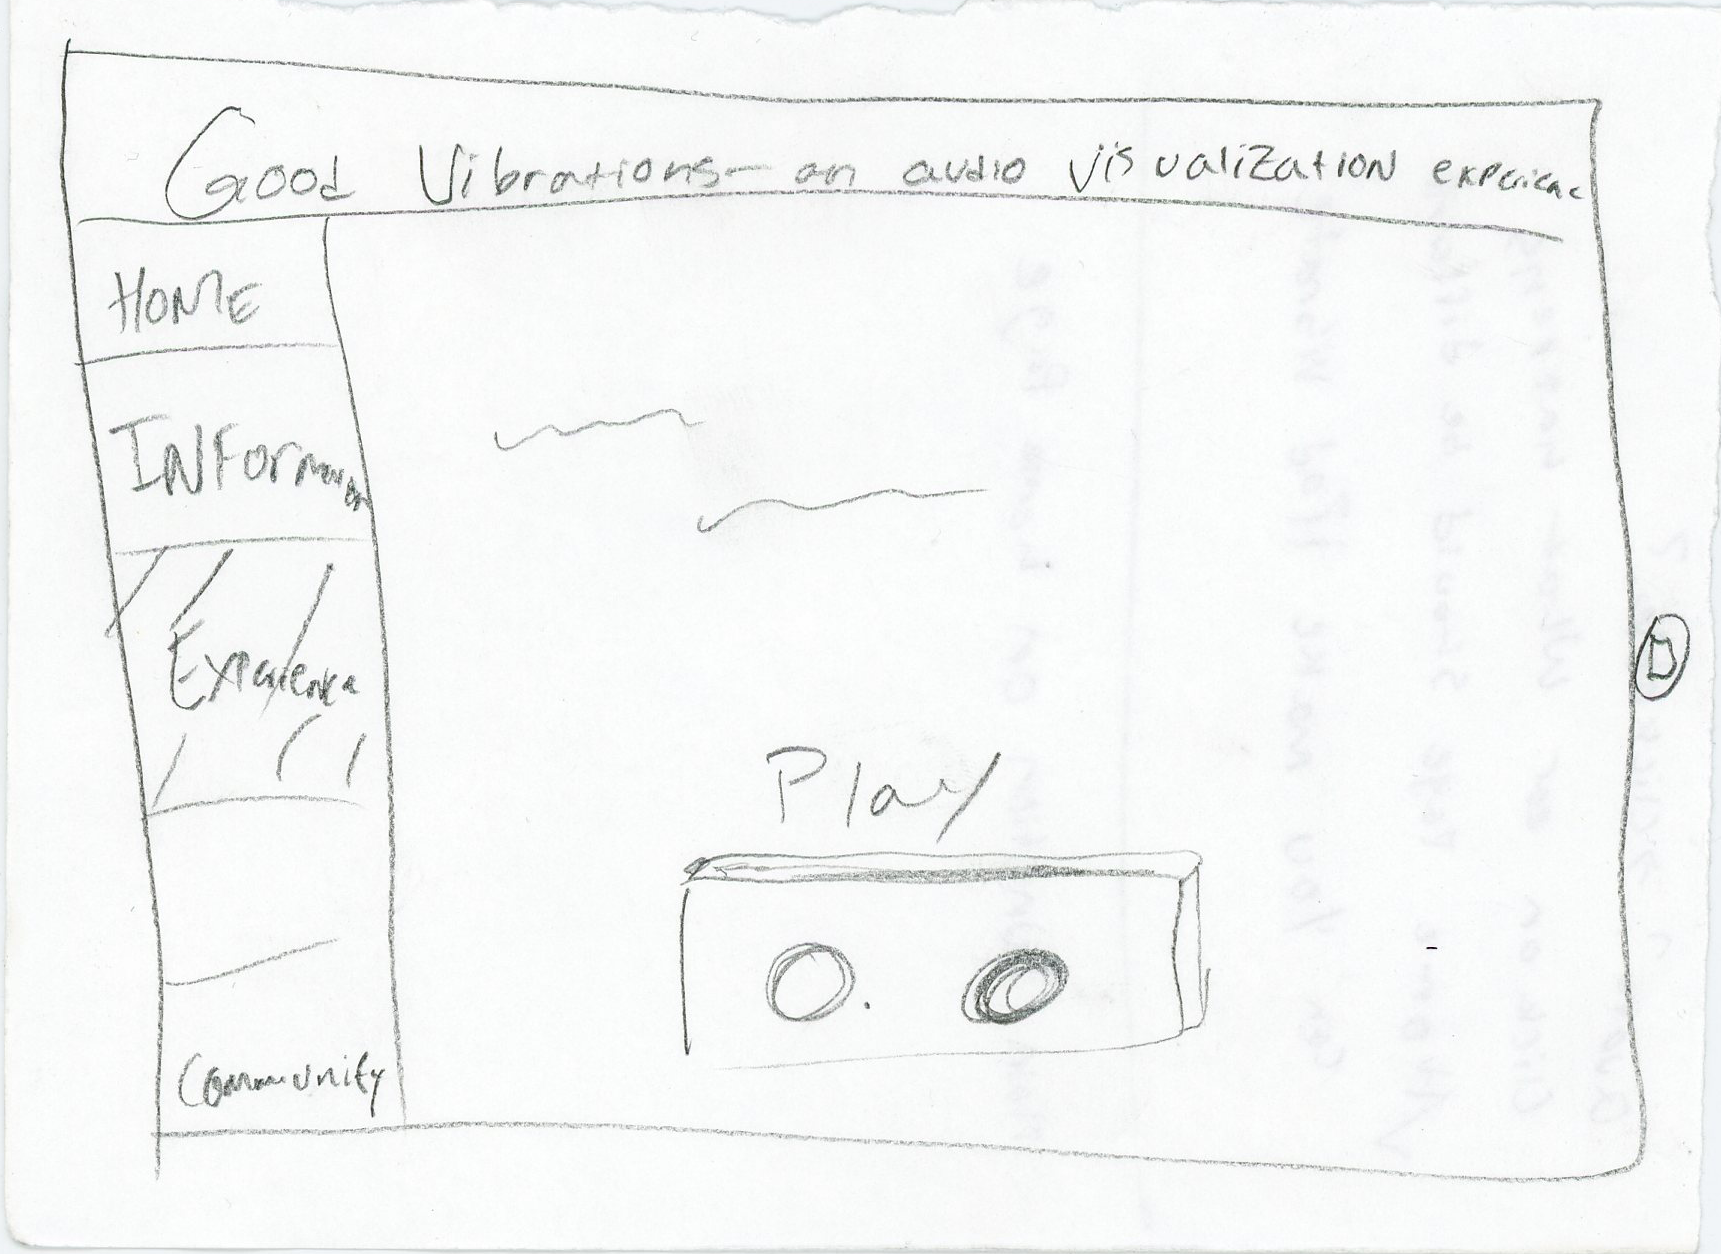 Good Vibrations - an audio visualization experienc
HOME
INFormation
Experience
Play
Community